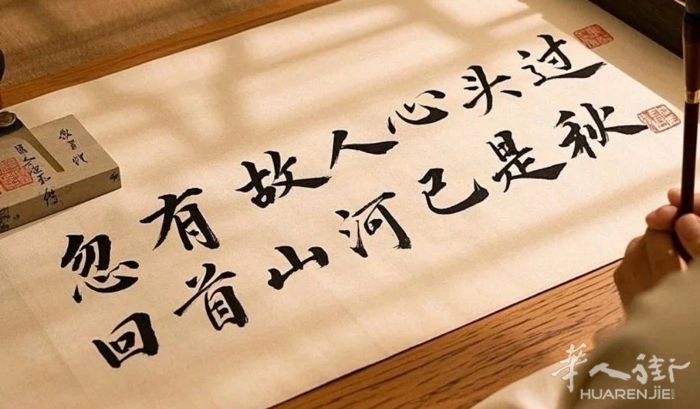 忽有故人心头过
回首山河已是秋
華人街
HUARENJIE